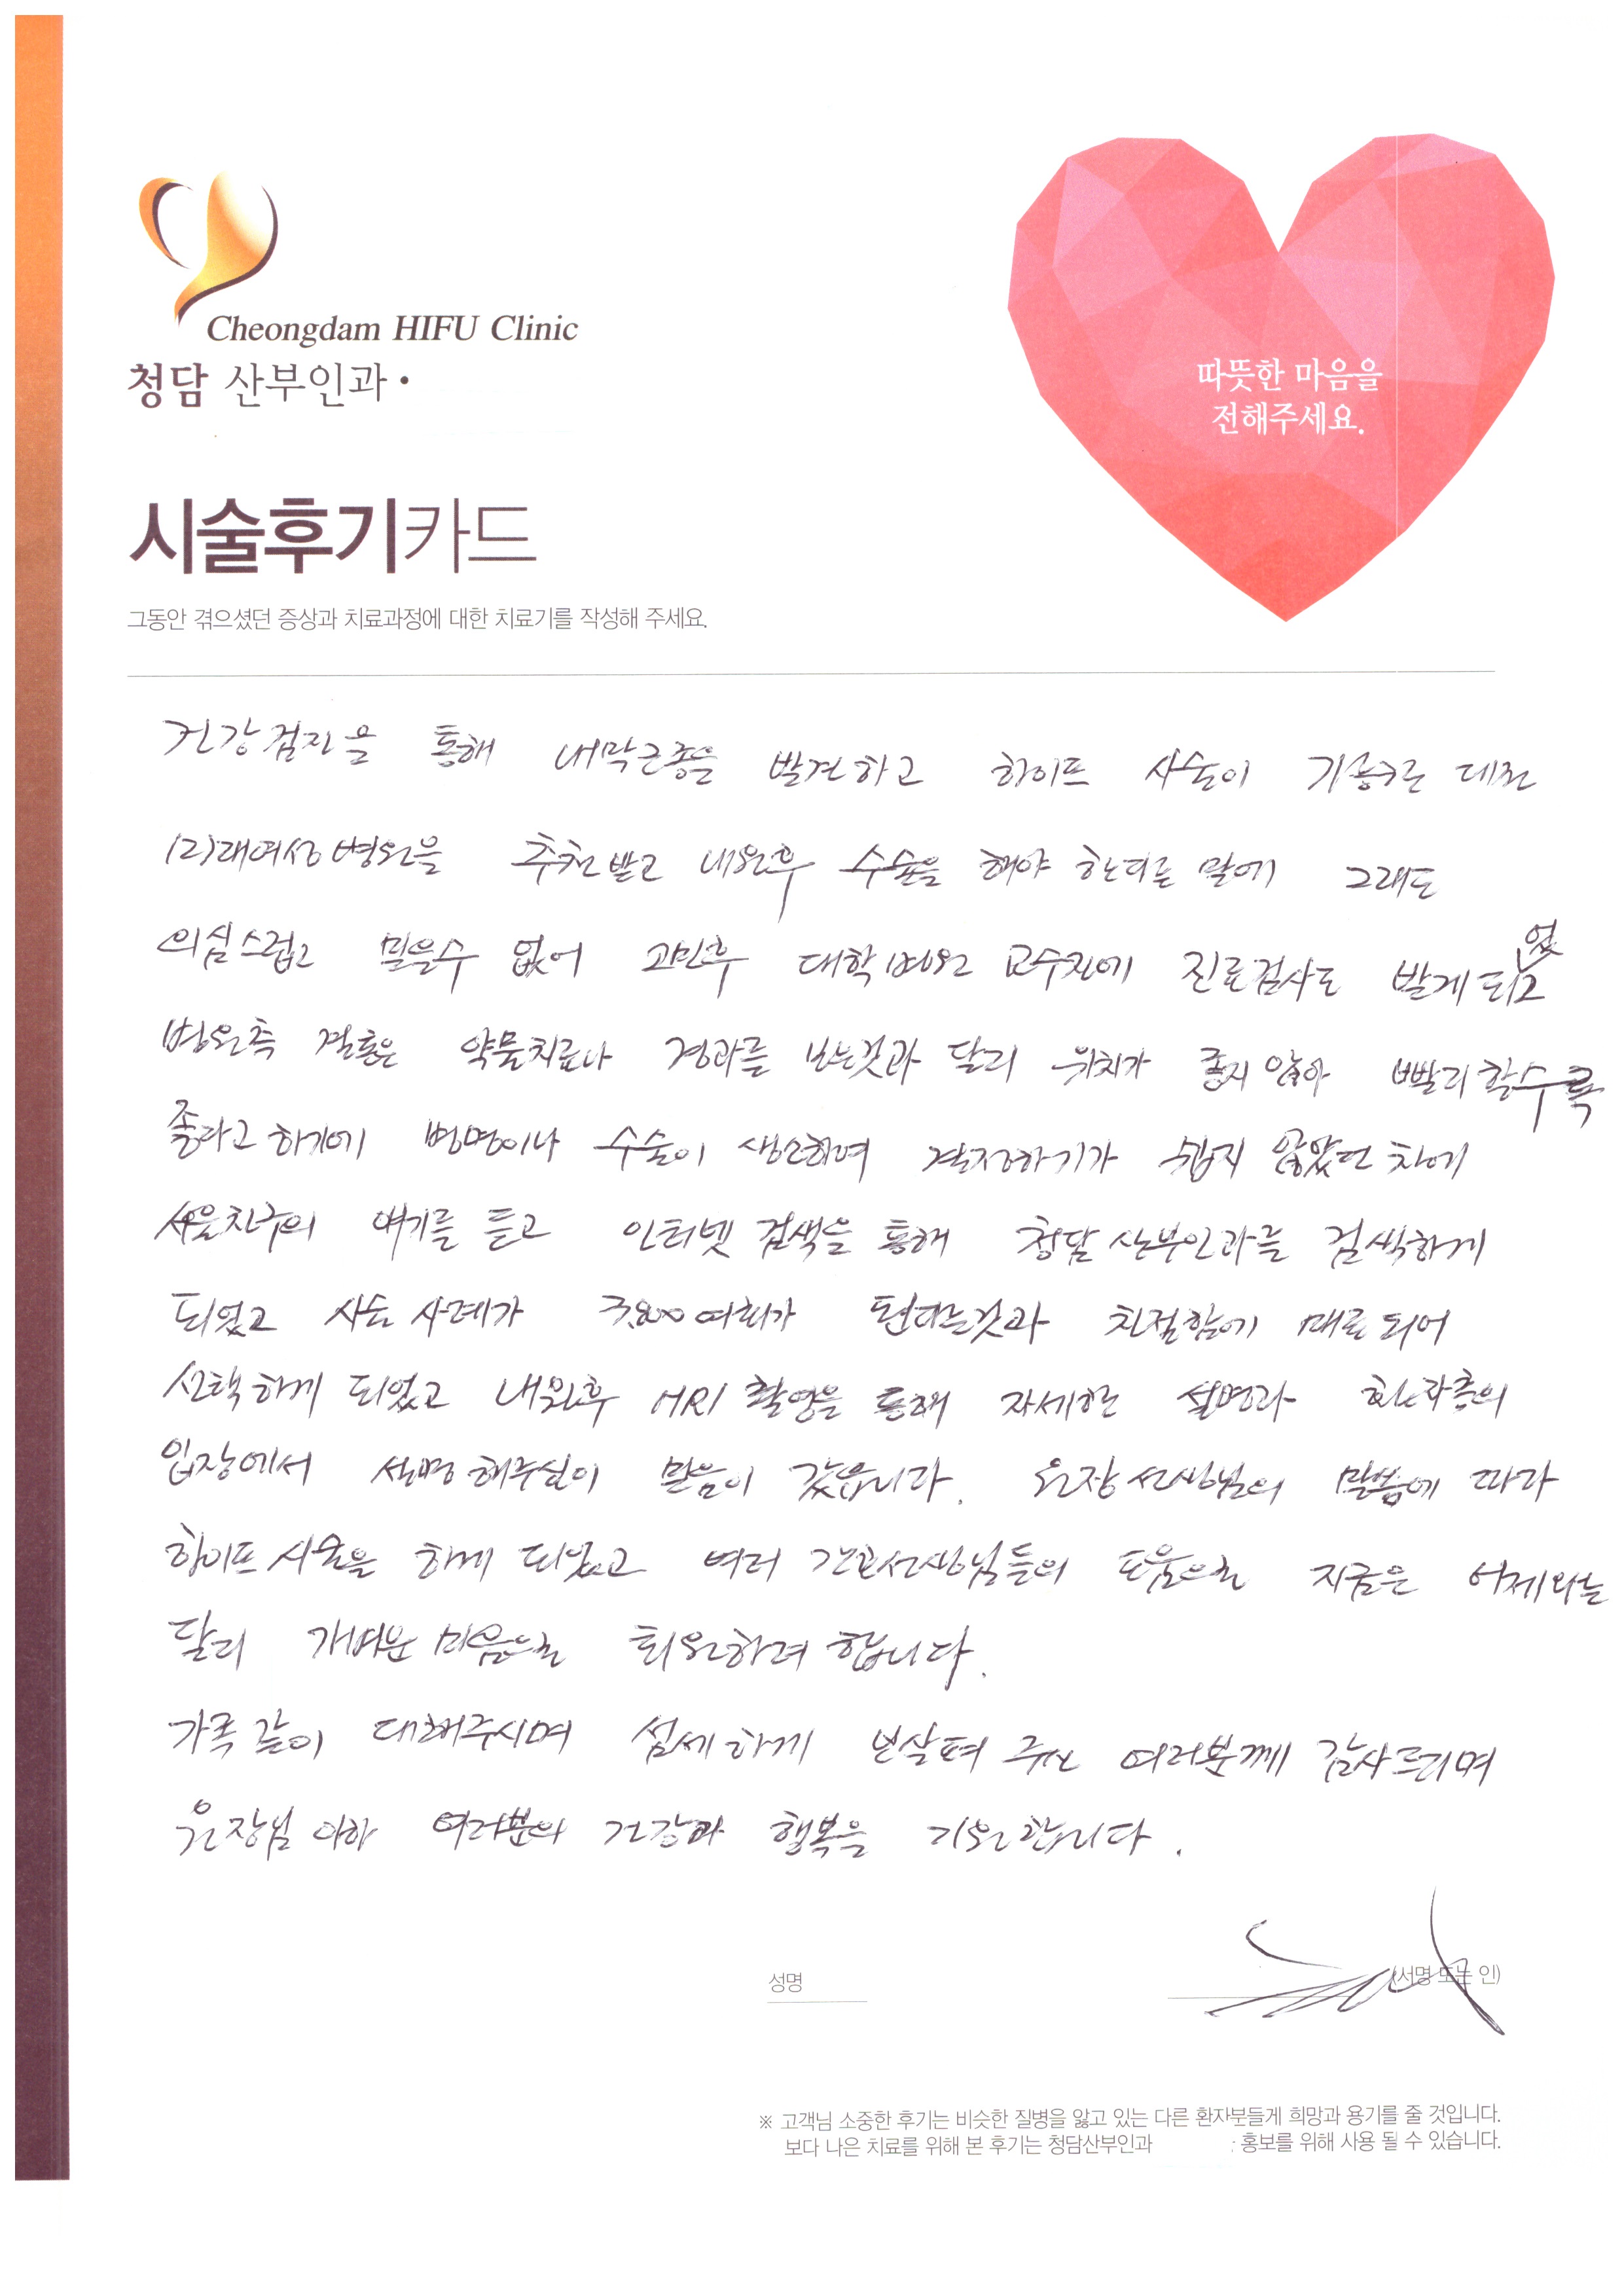 Cheongdam HIFU Clinic
청담 산부인과·
따뜻한 마음을
전해주세요.
시술후기카드
그동안 겪으셨던 증상과 치료과정에 대한 치료기를 작성해 주세요.
건강검진을 통해 내막근종을 발견하고 하이프 시술이 가능하는 대전
미래여성병원을 추천받고 내원후 수술을 해야 한다는 말에 그래도
의심스럽고 믿을수 없어 고민후 대학병원 교수진에 진료검사도 받게 되었고
병원측 결론은 약물치료나 경과를 보는것과 달리 위치가 좋지 않아 빨리 할수록
좋다고 하기에 병명이나 수술이 생소하여 결정하기가 쉽지 않았던 차에
서울친구의 얘기를 듣고 인터넷 검색을 통해 청담 산부인과를 검색하게
되었고 시술 사례가 3,800여회가 된다는것과 친절함에 매료 되어
선택하게 되었고 내원후 MRI 촬영을 통해 자세한 설명과 환자측의
입장에서 설명해주심이 믿음이 갔읍니다. 원장 선생님의 말씀에 따라
하이프 시술을 하게 되었고 여러 간호선생님들의 도움으로 지금은 어제와는
달리 가벼운 마음으로 퇴원하려 합니다.
가족같이 대해주시며 섬세하게 보살펴 주신 여러분께 감사드리며
원장님 이하 여러분의 건강과 행복을 기원합니다.
성명
(서명 또는 인)
※ 고객님 소중한 후기는 비슷한 질병을 앓고 있는 다른 환자분들게 희망과 용기를 줄 것입니다.
보다 나은 치료를 위해 본 후기는 청담산부인과 홍보를 위해 사용 될 수 있습니다.